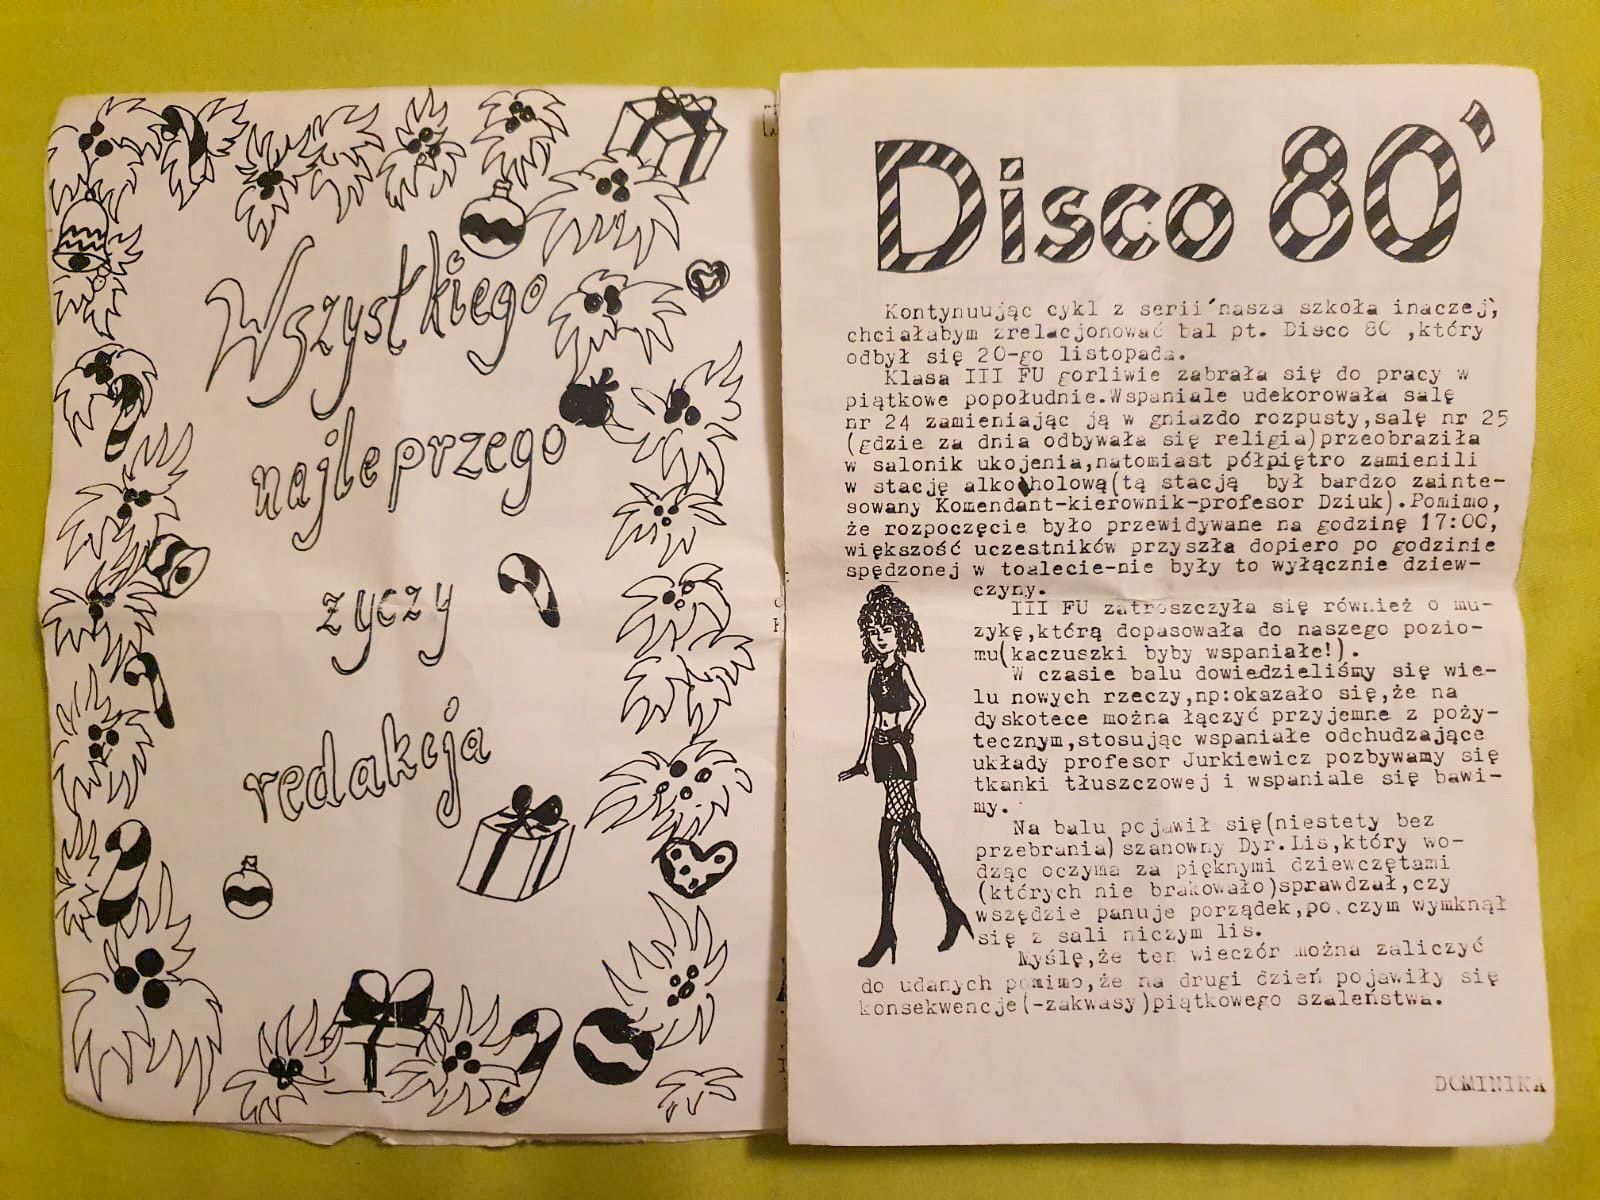 Wszystkiego
najleprzego
zyczy
redakcja
Disco 80'
Kontynuując cykl z serii 'nasza szkoła inaczej',
chciałabym zrelacjonować bal pt. Disco 80 ,który
odbył się 20-go listopada.
Klasa III FU gorliwie zabrała się do pracy w
piątkowe popołudnie.Wspaniale udekorowała salę
nr 24 zamieniając ją w gniazdo rozpusty,salę nr 25
(gdzie za dnia odbywała się religia)przeobraziła
w salonik ukojenia,natomiast półpiętro zamienili
w stację alkoholową(tą stacją był bardzo zainte-
sowany Komendant-kierownik-profesor Dziuk).Pomimo,
że rozpoczęcie było przewidywane na godzinę 17:00,
większość uczestników przyszła dopiero po godzinie
spędzonej w toalecie-nie były to wyłącznie dziew-
czyny.
III FU zatroszczyła się również o mu-
zykę,którą dopasowała do naszego pozio-
mu(kaczuszki byby wspaniałe!).
W czasie balu dowiedzieliśmy się wie-
lu nowych rzeczy,np:okazało się,że na
dyskotece można łączyć przyjemne z poży-
tecznym,stosując wspaniałe odchudzające
układy profesor Jurkiewicz pozbywamy się
tkanki tłuszczowej i wspaniale się bawi-
my.
Na balu pojawił się(niestety bez
przebrania) szanowny Dyr.Lis,który wo-
dząc oczyma za pięknymi dziewczętami
(których nie brakowało)sprawdzał,czy
wszędzie panuje porządek,po.czym wymknął
się z sali niczym lis.
Myślę,że ten wieczór można zaliczyć
do udanych pomimo,że na drugi dzień pojawiły się
konsekwencje(-zakwasy)piątkowego szaleństwa.
DOMINIKA